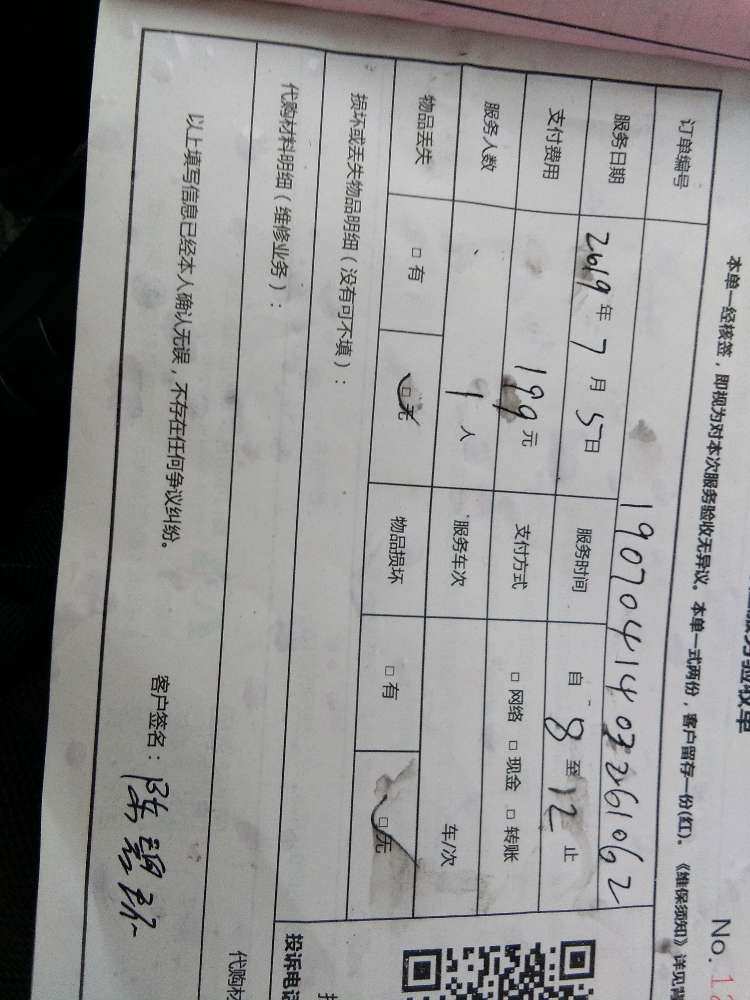 服务验收单
No. 1
本单一经核签，即视为对本次服务验收无异议。本单一式两份，客户留存一份(红)。《维保须知》详见背
订单编号 1907041403261062
服务日期 2019年7月5日 服务时间 自8至12止
支付费用 199元 支付方式 □ 网络 □ 现金 □ 转账
服务人数 1人 服务车次 车/次
物品丢失 □ 有 □ 无 物品损坏 □ 有 □ 无
损坏或丢失物品明细（没有可不填）：
代购材料明细（维修业务）：
投诉电话
代购材
以上填写信息已经本人确认无误，不存在任何争议纠纷。
客户签名：